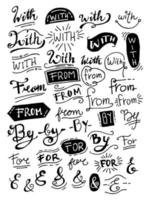 With WITH with
With WITH WITH
With With WITH WITH
From FROM from from
From FROM from
FROM From From from
By By By BY By
For FOR For For
For FOR for
& & & & &